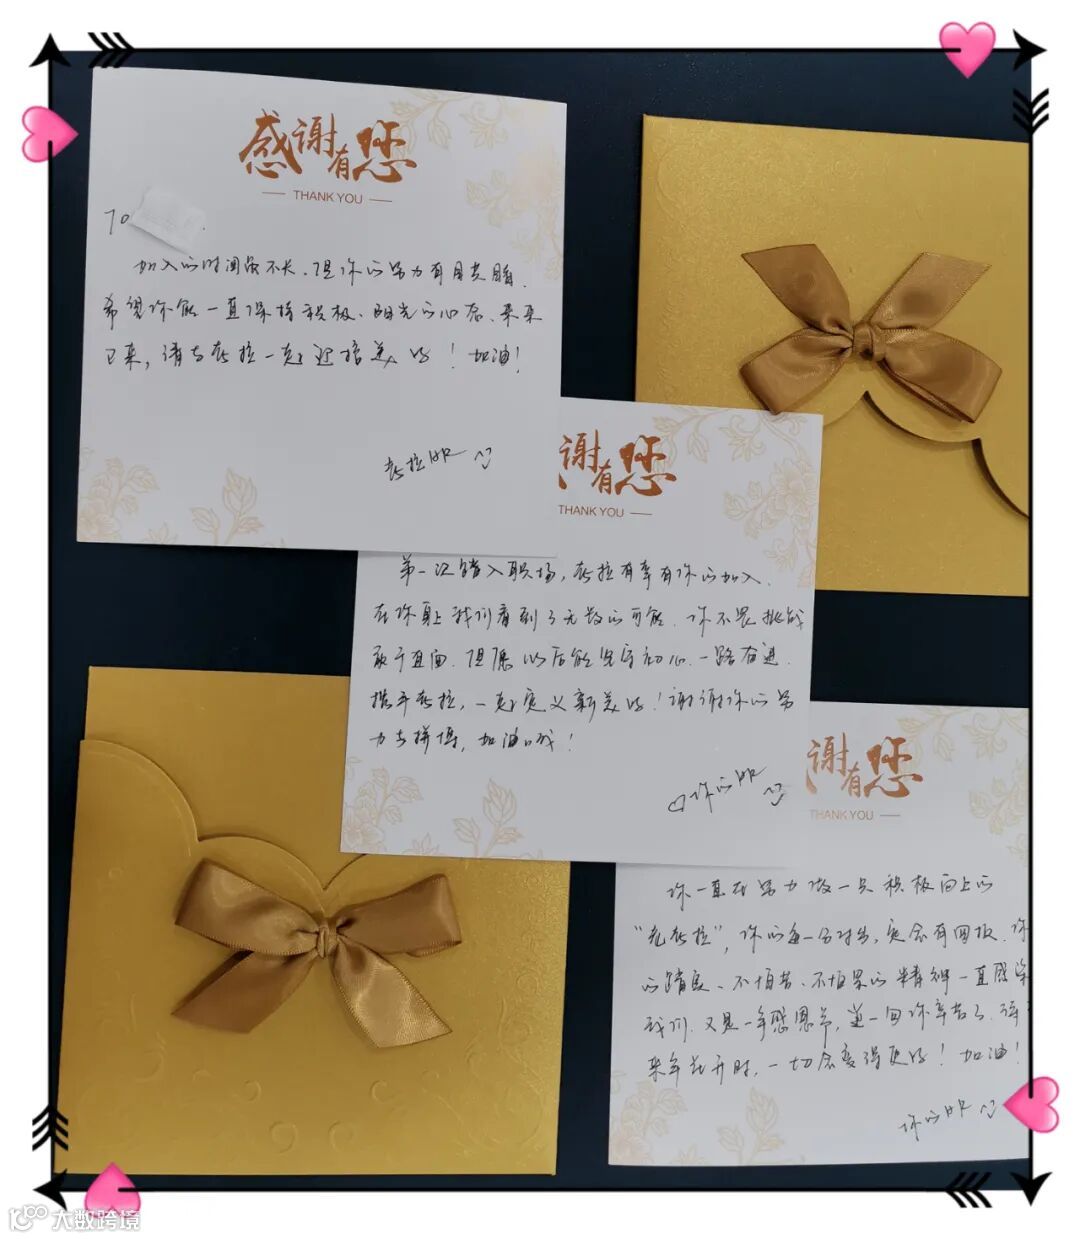 感谢有您
THANK YOU
TO
加入的时间虽不长,但你的努力有目共睹.
希望你能一直保持积极、阳光的心态.未来
已来,请与 拉一起迎接美好!加油!
谢有您
THANK YOU
第一次踏入职场, 拉有幸有你的加入.
在你身上我们看到了无数的可能.你不畏挑战
敢于直面.但愿以后能坚守初心.一路奋进.
携手 拉,一起定义新美好!谢谢你的努
力与拼搏,加油哦!
你的
谢有您
THANK YOU
你一直在努力做一只积极向上的
拉",你的每一分付出,定会有回报.你
的踏实、不怕苦、不怕累的精神一直感染
我们.又是一年感恩节,道一句你辛苦了.
来年花开时,一切会变得更好!加油!
你的
大数跨境